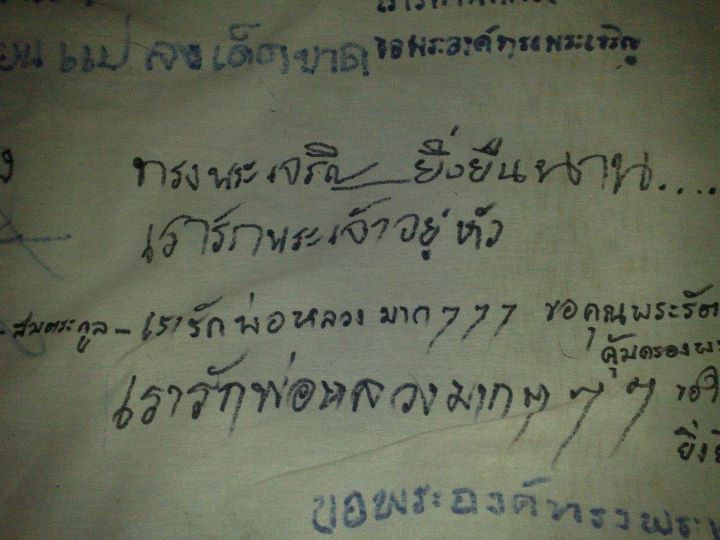 ขอพระองค์ทรงพระเจริญ
ทรงพระเจริญ ยิ่งยืนนาน....
เรารักพระเจ้าอยู่หัว
เรารักพ่อหลวงมากๆๆๆ ขอคุณพระรัต
คุ้มครองพ
เรารักพ่อหลวงมากๆๆๆ ขอใ
ยิ่งยื
ขอพระองค์ทรงพระ